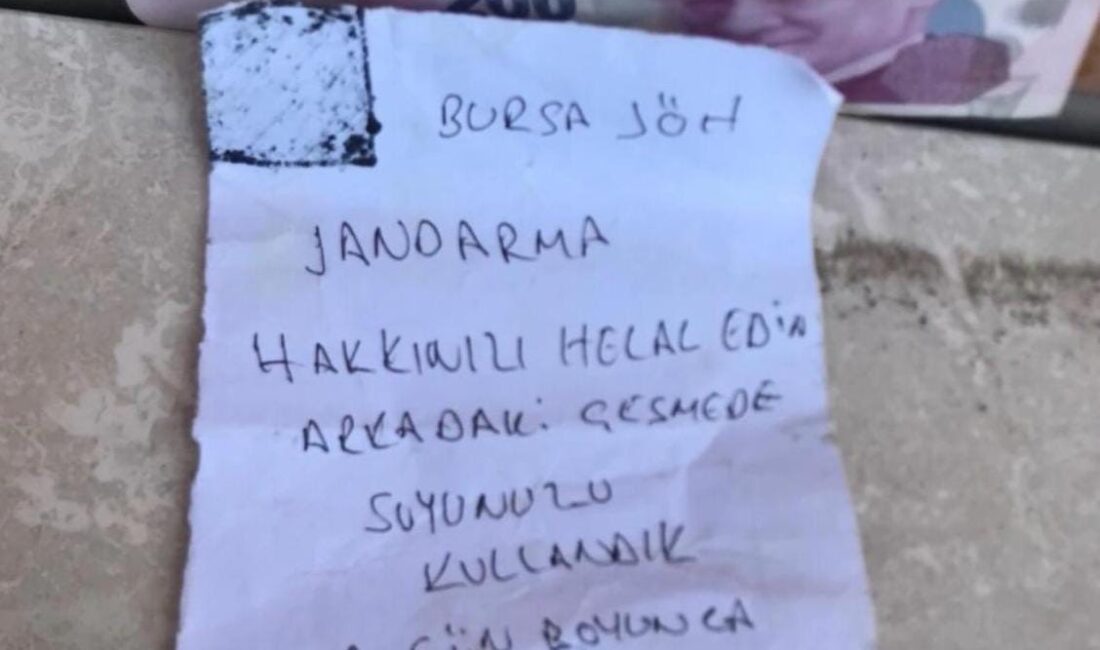 200
BURSA JÖH
JANDARMA
HAKKINIZI HELAL EDİN
ARKADAKİ ÇEŞMEDE
SUYUNUZU
KULLANDIK
GÜN BOYUNCA